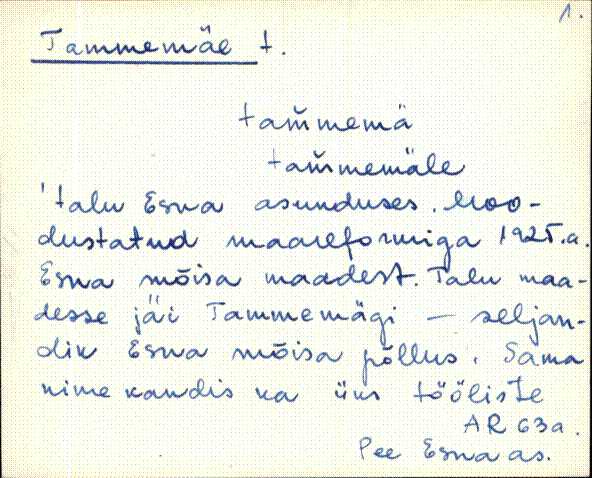 1.
Tammemäe t.
tam̆memä
tam̆memäle
'talu Esna asunduses. Moo-
dustatud maareformiga 1925.a.
Esna mõisa maadest. Talu maa-
desse jäi Tammemägi – seljan-
dik Esna mõisa põllus. Sama
nime kandis ka üks tööliste
AR 63a.
Pee Esna as.